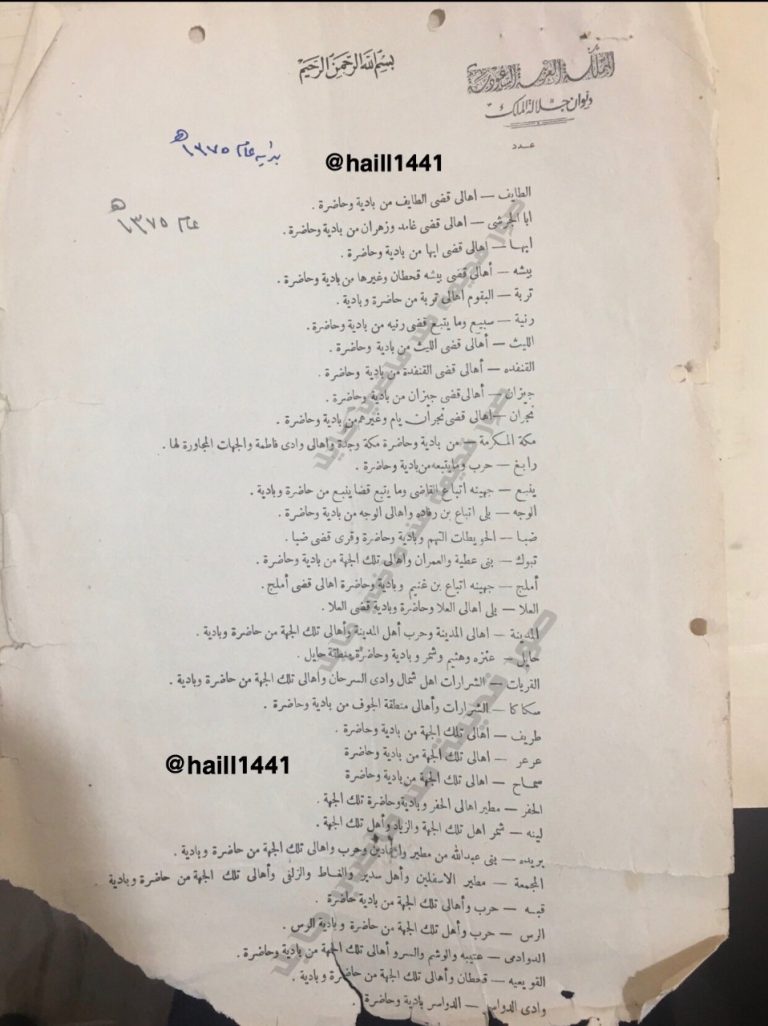 بسم الله الرحمن الرحيم
المملكة العربية السعودية
ديوان جلالة الملك
عدد
بداية عام ١٣٧٥ هـ
@haill1441
عام ١٣٧٥ هـ
الطايف — اهالى قضى الطايف من بادية وحاضرة .
ابا الجرشى — اهالى قضى غامد وزهران من بادية وحاضرة .
ابها — اهالى قضى ابها من بادية وحاضرة .
بيشه — أهالى قضى بيشه قحطان وغيرها من بادية وحاضرة .
تربة — البقوم اهالى تربة من حاضرة وبادية .
رنية — سبيع وما يتبع قضى رنيه من بادية وحاضرة .
الليث — أهالى قضى الليث من بادية وحاضرة .
القنفده — أهالى قضى القنفدة من بادية وحاضرة .
جيزان — أهالى قضى جيزان من بادية وحاضرة .
نجران — اهالى قضى نجران يام وغيرهم من بادية وحاضرة .
مكة المكرمة — من بادية وحاضرة مكة وجدة واهالى وادى فاطمة والجهات المجاورة لها .
رابغ — حرب وما يتبعه من بادية وحاضرة .
ينبع — جهينه اتباع القاضى وما يتبع قضا ينبع من حاضرة وبادية .
الوجه — بلى اتباع بن رفاده واهالى الوجه من بادية وحاضرة .
ضبا — الحويطات التهم وبادية وحاضرة وقرى قضى ضبا .
تبوك — بنى عطية والعمران وأهالى تلك الجهة من بادية وحاضرة .
أملج — جهينه اتباع بن غنيم وبادية وحاضرة اهالى قضى أملج .
العلا — بلى اهالى العلا وحاضرة وبادية قضى العلا .
المدينة — اهالى المدينة وحرب أهل المدينة وأهالى تلك الجهة من حاضرة وبادية .
حايل — عنزه وهتيم وشمر وبادية وحاضرة منطقة حايل .
القريات — الشرارات اهل شمال وادى السرحان وأهالى تلك الجهة من حاضرة وبادية .
سكاكا — الشرارات وأهالى منطقة الجوف من بادية وحاضرة .
طريف — اهالى تلك الجهة من بادية وحاضرة .
عرعر — اهالى تلك الجهة من بادية وحاضرة
سماح — اهالى تلك الجهة من بادية وحاضرة
@haill1441
الحفر — مطير اهالى الحفر وبادية وحاضرة تلك الجهة .
لينه — شمر اهل تلك الجهة والزياد وأهل تلك الجهة .
بريده — بنى عبدالله من مطير وحرب واهالى تلك الجهة من حاضرة وبادية .
المجمعة — مطير الاسفلين وأهل سدير والغاط والزلفى وأهالى تلك الجهة من حاضرة وبادية .
قبه — حرب وأهالى تلك الجهة من بادية حاضرة .
الرس — حرب وأهل تلك الجهة من حاضرة وبادية الرس .
الدوادمى — عتيبه والوشم والسر وأهالى تلك الجهة من بادية وحاضرة .
القويعيه — قحطان وأهالى تلك الجهة من حاضرة وبادية .
وادى الدواسر — الدواسر بادية وحاضرة .